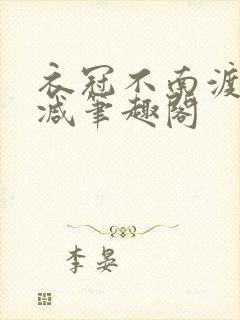 衣冠不南渡
减笔趣阁
李晏